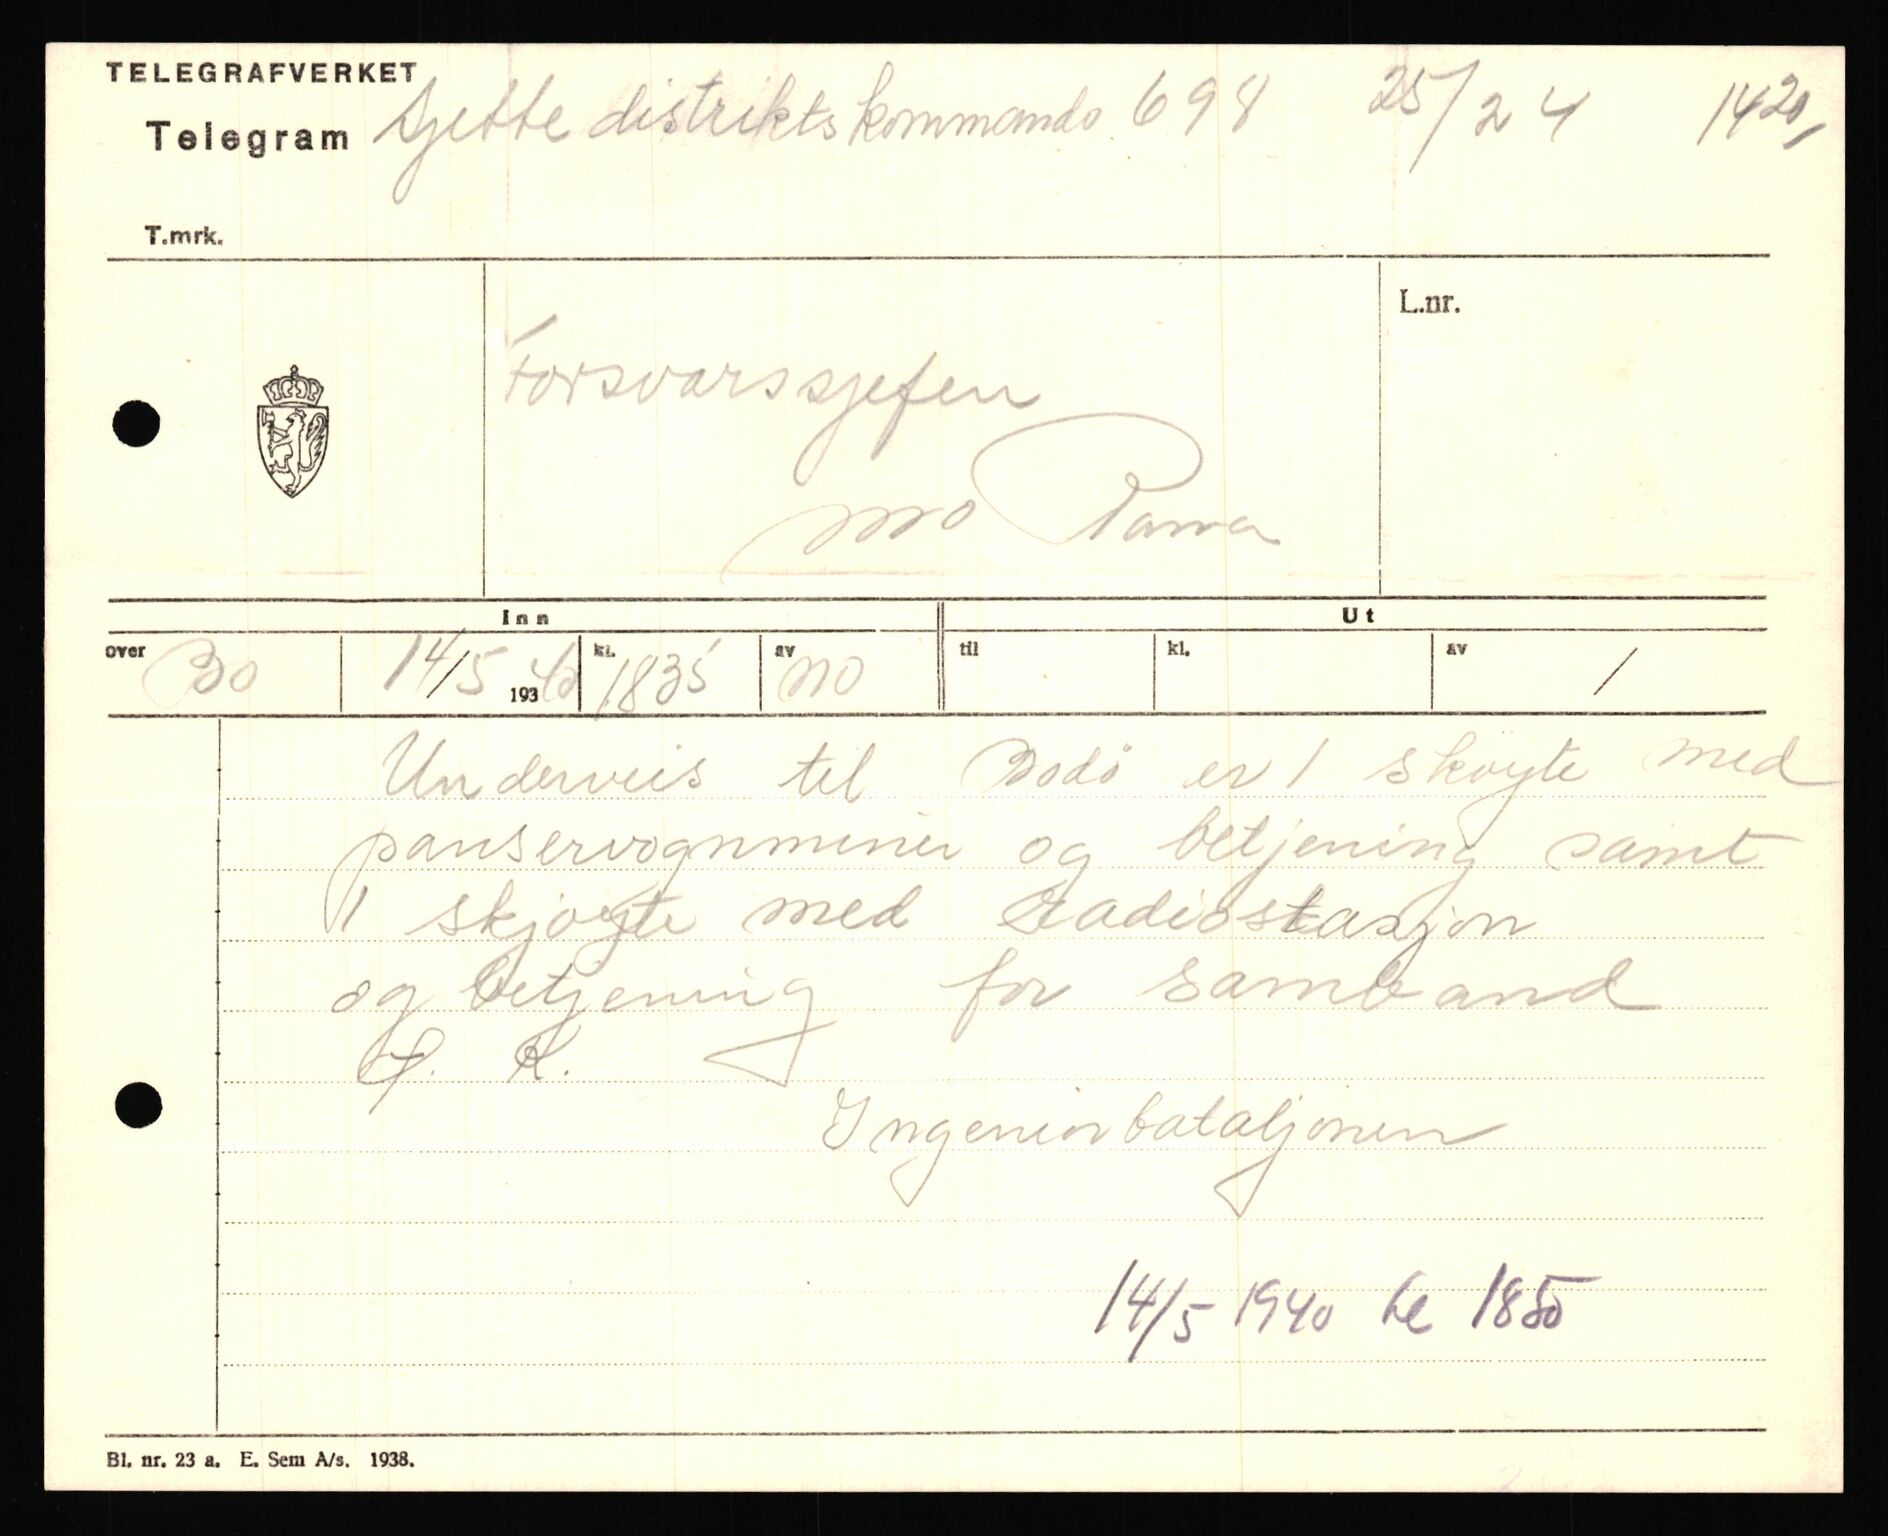 TELEGRAFVERKET
Telegram Sjette distriktskommando 698 25/24 1420
T.mrk.
L.nr.
Forsvarssjefen
Mo Rana
Inn Ut
over Bo 14/5 1940 kl. 1835 av no til kl. av /
Underveis til Bodö er 1 sköyte med
panservognminer og betjening samt
1 skjøyte med radiostasjon
og betjening for samband
K.
Ingeniørbataljonen
14/5 1940 kl 1850
Bl. nr. 23 a. E. Sem A/s. 1938.